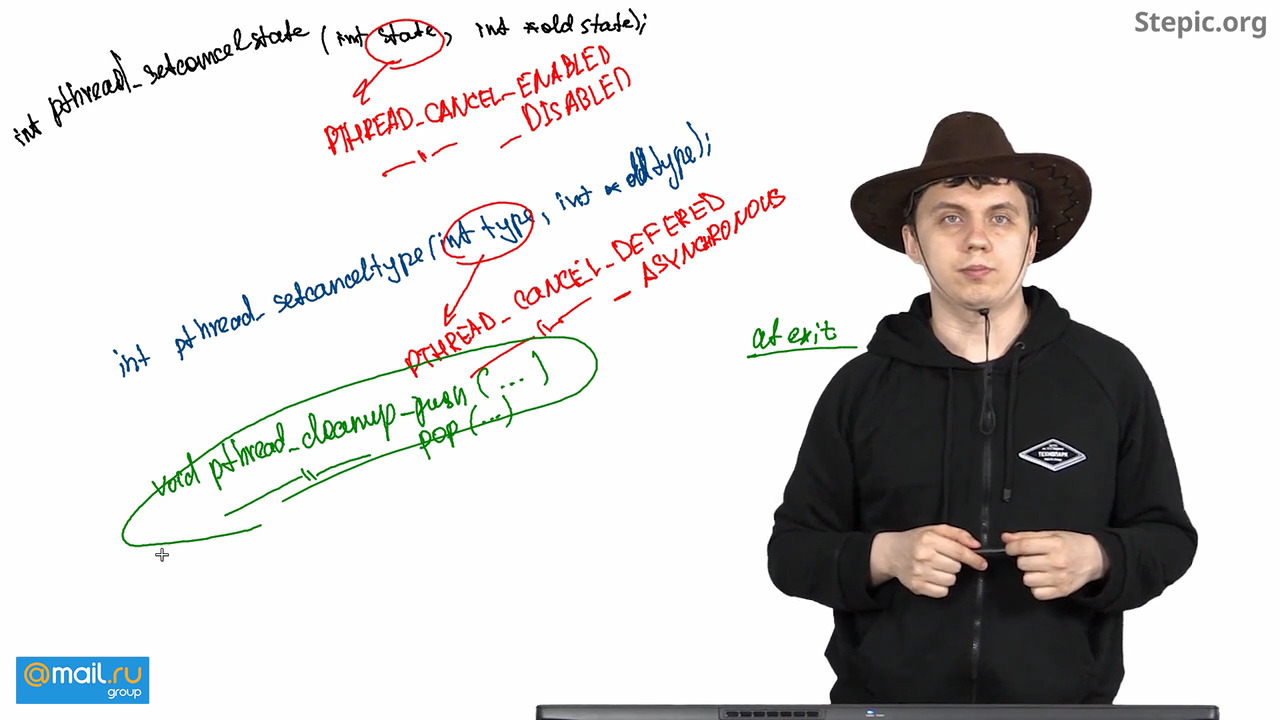 Stepic.org
int pthread_setcancelstate (int state, int *old state);
PTHREAD_CANCEL-ENABLED
—"— _ DISABLED
int pthread_setcanceltype(int type, int * oldtype);
PTHREAD_CANCEL_DEFERED
—"— _ ASYNCHRONOUS
at exit
void pthread_cleanup-push (...)
—"— pop (...)
ТЕХНОПАРК
@mail.ru
group